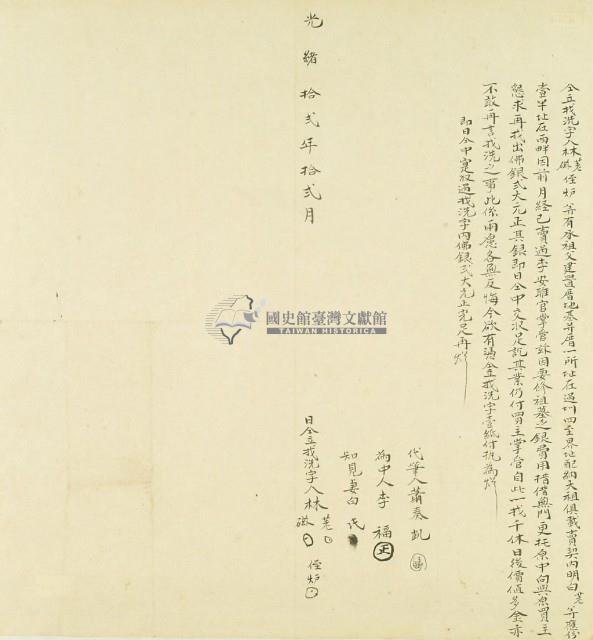 仝立找洗字人林 侄炉等有承祖父建置厝地基并厝一所址在過圳四至界址配納大祖俱載賣契內明白 等應份
壹半址在西畔因前月経已賣過李安雖官掌管茲因要修祖墓乏銀費用揩借無門更托原中向與原買主
懇求再找出佛銀弍大元正其銀即日仝中交收足訖其業仍付買主掌管自此一找千休日後價值多金亦
不敢再言找洗之事此係兩愿各無反悔今欲有憑仝立找洗字壹紙付执為炤
即日仝中寔收過找洗字內佛銀弍大元正完足再炤
代筆人蕭奏凱
為中人李福 正
知見妻白氏
光緒拾弍年拾弍月 日仝立找洗字人林 侄炉
國史館臺灣文獻館
TAIWAN HISTORICA